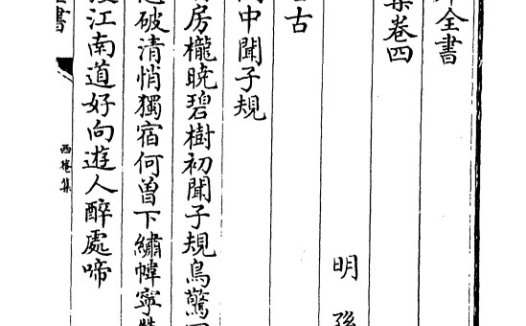 全書
集卷四
明 孫
古
中聞子規
房櫳曉碧樹初聞子規鳥驚
破清悄獨宿何曾下繡幃寧
江南道好向遊人醉處啼
書
西菴集